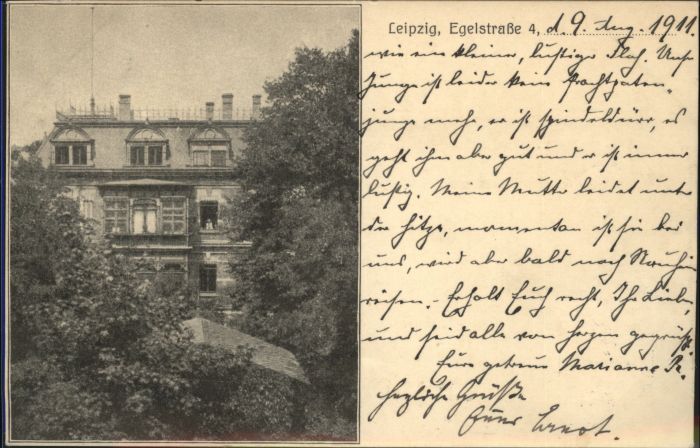 Leipzig, Egelstraße 4, d. 9. Aug. 1911.
wie ein kleiner, lustiger Floh. Unser
Junge ist leider kein Prachtpaten-
junge mehr, er ist spindeldürr, es
geht ihm aber gut und er ist immer
lustig. Meine Mutter leidet unter
der Hitze, momentan ist sie bei
uns, wird aber bald nach Nauheim
reisen. - Erholt Euch recht, Ihr Lieben,
und seid alle von Herzen gegrüßt
Eure getreue Marianne
herzliche Grüße
Euer Ernst.